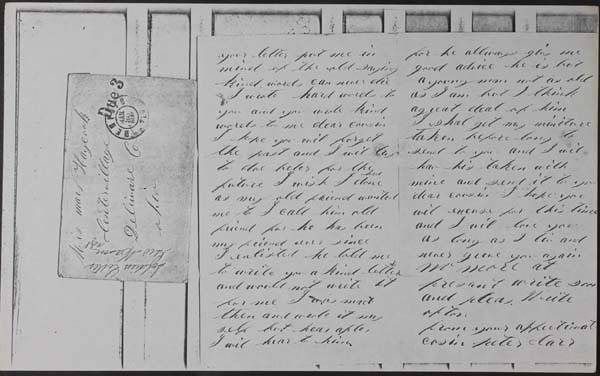 Due 3
Miss Mary Haycock
Centervillage
Delaware Co
Ohio
Soldiers Letter
your letter put me in
mind of the old saying
kind words can never die
I wrote hard words to
you and you wrote kind
words to me dear cousin
I hope you wil forget
the past and I wil try
to doe beter for the
future I wish I had done
as my old friend wanted
me to I call him old
friend for he has been
my friend ever since
I enlisted he told me
to write you a kind letter
and would not write it
for me I was mad
then and wrote it my
self but hear after
I wil hear to him
for he allways give me
good advice he is but
a young man not as old
as I am but I think
a great deal of him
I shal get my minture
taken before long to
send to you and I wil
hav his taken with
mine and send it to you
dear cousin I hope you
wil excuse for this time
and I wil love you
as long as I liv and
never greve you again
No more at
presant write soon
and pleas write
often
from your affectinat
cosin peter Carr